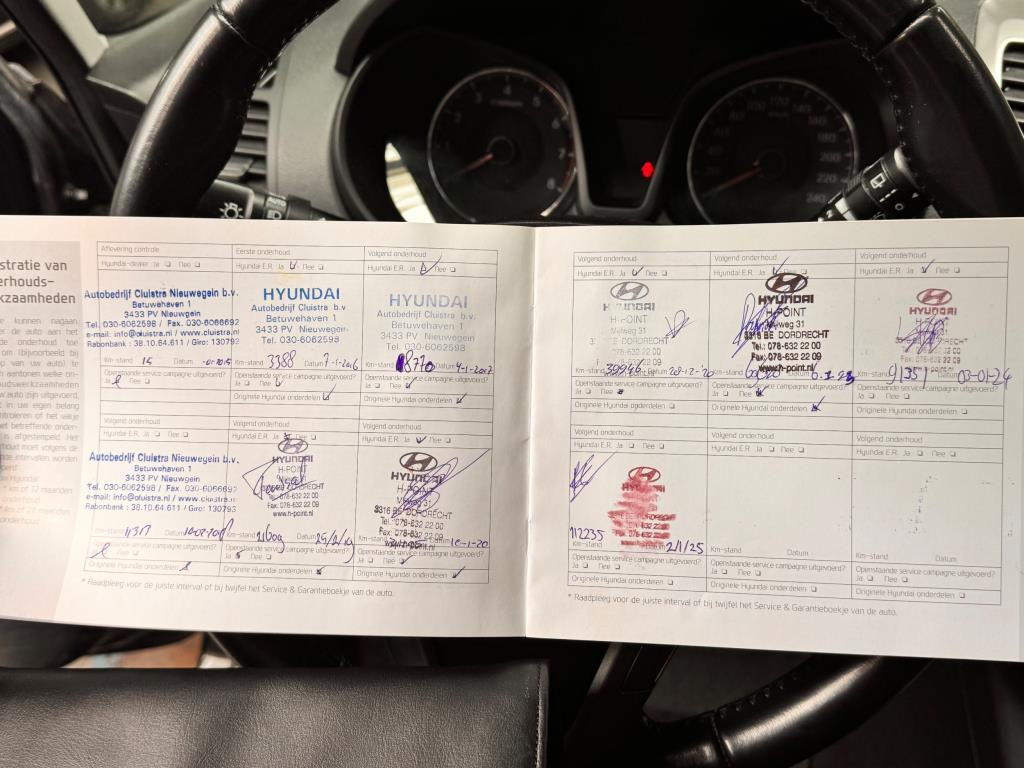 stratie van
erhouds-
kzaamheden
Aflevering controle
Hyundai-dealer Ja Nee
Autobedrijf Cluistra Nieuwegein b.v.
Betuwehaven 1
3433 PV Nieuwegein
Tel. 030-6062598 / Fax. 030-6066692
e-mail: info@cluistra.nl / www.cluistra.nl
Rabonbank : 38.10.64.611 / Giro: 130793
Km-stand 15 Datum
Openstaande service campagne uitgevoerd?
Ja Nee
Eerste onderhoud
Hyundai E.R. Ja Nee
HYUNDAI
Autobedrijf Cluistra b.v.
Betuwehaven 1
3433 PV Nieuwegein
Tel. 030-6062598
Km-stand 3388 Datum 7-1-2016
Openstaande service campagne uitgevoerd?
Ja Nee
Originele Hyundai onderdelen
Volgend onderhoud
Hyundai E.R. Ja Nee
HYUNDAI
Autobedrijf Cluistra b.v.
Betuwehaven 1
3433 PV Nieuwegein
Tel. 030-6062598
Km-stand 8770 Datum 4-1-2017
Openstaande service campagne uitgevoerd?
Ja Nee
Originele Hyundai onderdelen
Volgend onderhoud
Hyundai E.R. Ja Nee
Autobedrijf Cluistra Nieuwegein b.v.
Betuwehaven 1
3433 PV Nieuwegein
Tel. 030-6062598 / Fax. 030-6066692
e-mail: info@cluistra.nl / www.cluistra
Rabonbank : 38.10.64.611 / Giro: 130793
Km-stand Datum
Openstaande service campagne uitgevoerd?
Ja Nee
Originele Hyundai onderdelen
Volgend onderhoud
Hyundai E.R. Ja Nee
HYUNDAI
H-POINT
Tel.: 078-632 22 00
Fax: 078-632 22 09
www.h-point.nl
Km-stand Datum
Openstaande service campagne uitgevoerd?
Ja Nee
Originele Hyundai onderdelen
Volgend onderhoud
Hyundai E.R. Ja Nee
HYUNDAI
H-POINT
3316 BE DORDRECHT
Tel.: 078-632 22 00
Fax: 078-632 22 09
Datum 10-1-20
Openstaande service campagne uitgevoerd?
Ja Nee
Originele Hyundai onderdelen
* Raadpleeg voor de juiste interval of bij twijfel het Service & Garantieboekje van de auto.
Volgend onderhoud
Hyundai E.R. Ja Nee
HYUNDAI
H-POINT
Mijlweg 31
3316 BE DORDRECHT
Tel.: 078-632 22 00
Fax: 078-632 22 09
www.h-point.nl
Km-stand 39946 Datum 28-12-20
Openstaande service campagne uitgevoerd?
Ja Nee
Originele Hyundai onderdelen
Volgend onderhoud
Hyundai E.R. Ja Nee
HYUNDAI
H-POINT
Mijlweg 31
3316 BE DORDRECHT
Tel.: 078-632 22 00
Fax: 078-632 22 09
www.h-point.nl
Km-stand Datum
Openstaande service campagne uitgevoerd?
Ja Nee
Originele Hyundai onderdelen
Volgend onderhoud
Hyundai E.R. Ja Nee
HYUNDAI
Km-stand 91351 Datum 03-01-24
Openstaande service campagne uitgevoerd?
Ja Nee
Originele Hyundai onderdelen
Volgend onderhoud
HYUNDAI
112235
2/1/25
Openstaande service campagne uitgevoerd?
Ja Nee
Originele Hyundai onderdelen
Volgend onderhoud
Hyundai E.R. Ja Nee
Km-stand Datum
Openstaande service campagne uitgevoerd?
Ja Nee
Originele Hyundai onderdelen
Volgend onderhoud
Hyundai E.R. Ja Nee
Km-stand Datum
Openstaande service campagne uitgevoerd?
Ja Nee
Originele Hyundai onderdelen
* Raadpleeg voor de juiste interval of bij twijfel het Service & Garantieboekje van de auto.